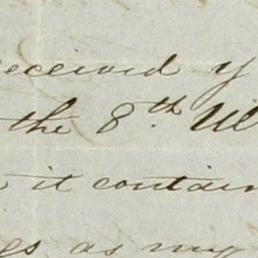 received y
the 8th. Ul
it contain
as my